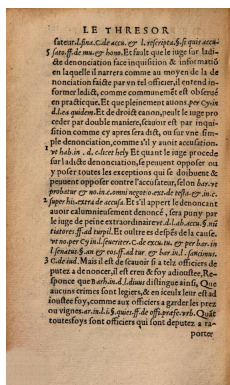 LE THRESOR
sateur.l.fina.C.de accu. & l. rescripta.§.si quis accu
sato.ff.de mu.& hono. Et fault que le iuge sur ladi-
cte denonciation face inquisition & informatiō
en laquelle il narrera comme au moyen de la de
nonciation faicte par vn tel officier, il entend in-
former ledict, comme communemēt est obserué
en practicque. Et que pleinement auons per Cy.in
d.l.ea quidem. Et de droict canon, peult le iuge pro
ceder par double maniere, scauoir est par inqui-
sition comme cy apres sera dict, ou sur vne sim-
ple denonciation, comme s'il y auoit accusation.
vt hab.in . d. c.licet hely Et quant le iuge procede
sur ladicte denonciation, se peuuent opposer ou
y poser toutes les exceptions qui se doibuent &
peuuent opposer contre l'accusateur, selon bar.vt
probatur & no.in c.cum super his.extra de accusa. Et s'il appert le denoncant
auoir calumnieusement denoncé, sera puny par
le iuge de peine extraordinaire
tiatores.ff.ad turpil. Et oultre es despēs de la cause,
vt no.per Cy.in l. C.de excu.tu. & per bar.in
l.senatus.§.an & eos.ff.ad tur. & bar.in l.sancimus.
C.de iud. Mais il est de scauoir si a telz officiers de
putez a denoncer, il est creu & foy adioustee, Re-
sponce que Barh.in d.l.diuus distingue ainsi, Que
aucuns crimes sont legiers, & en iceulx leur est ad
ioustee foy, comme aux officiers a garder les prez
ou vignes.ar.in l.i.§.quies.ff.de offi.præfe.vrb. Quāt
toutesfoys sont officiers qui sont deputez a ra-
porter